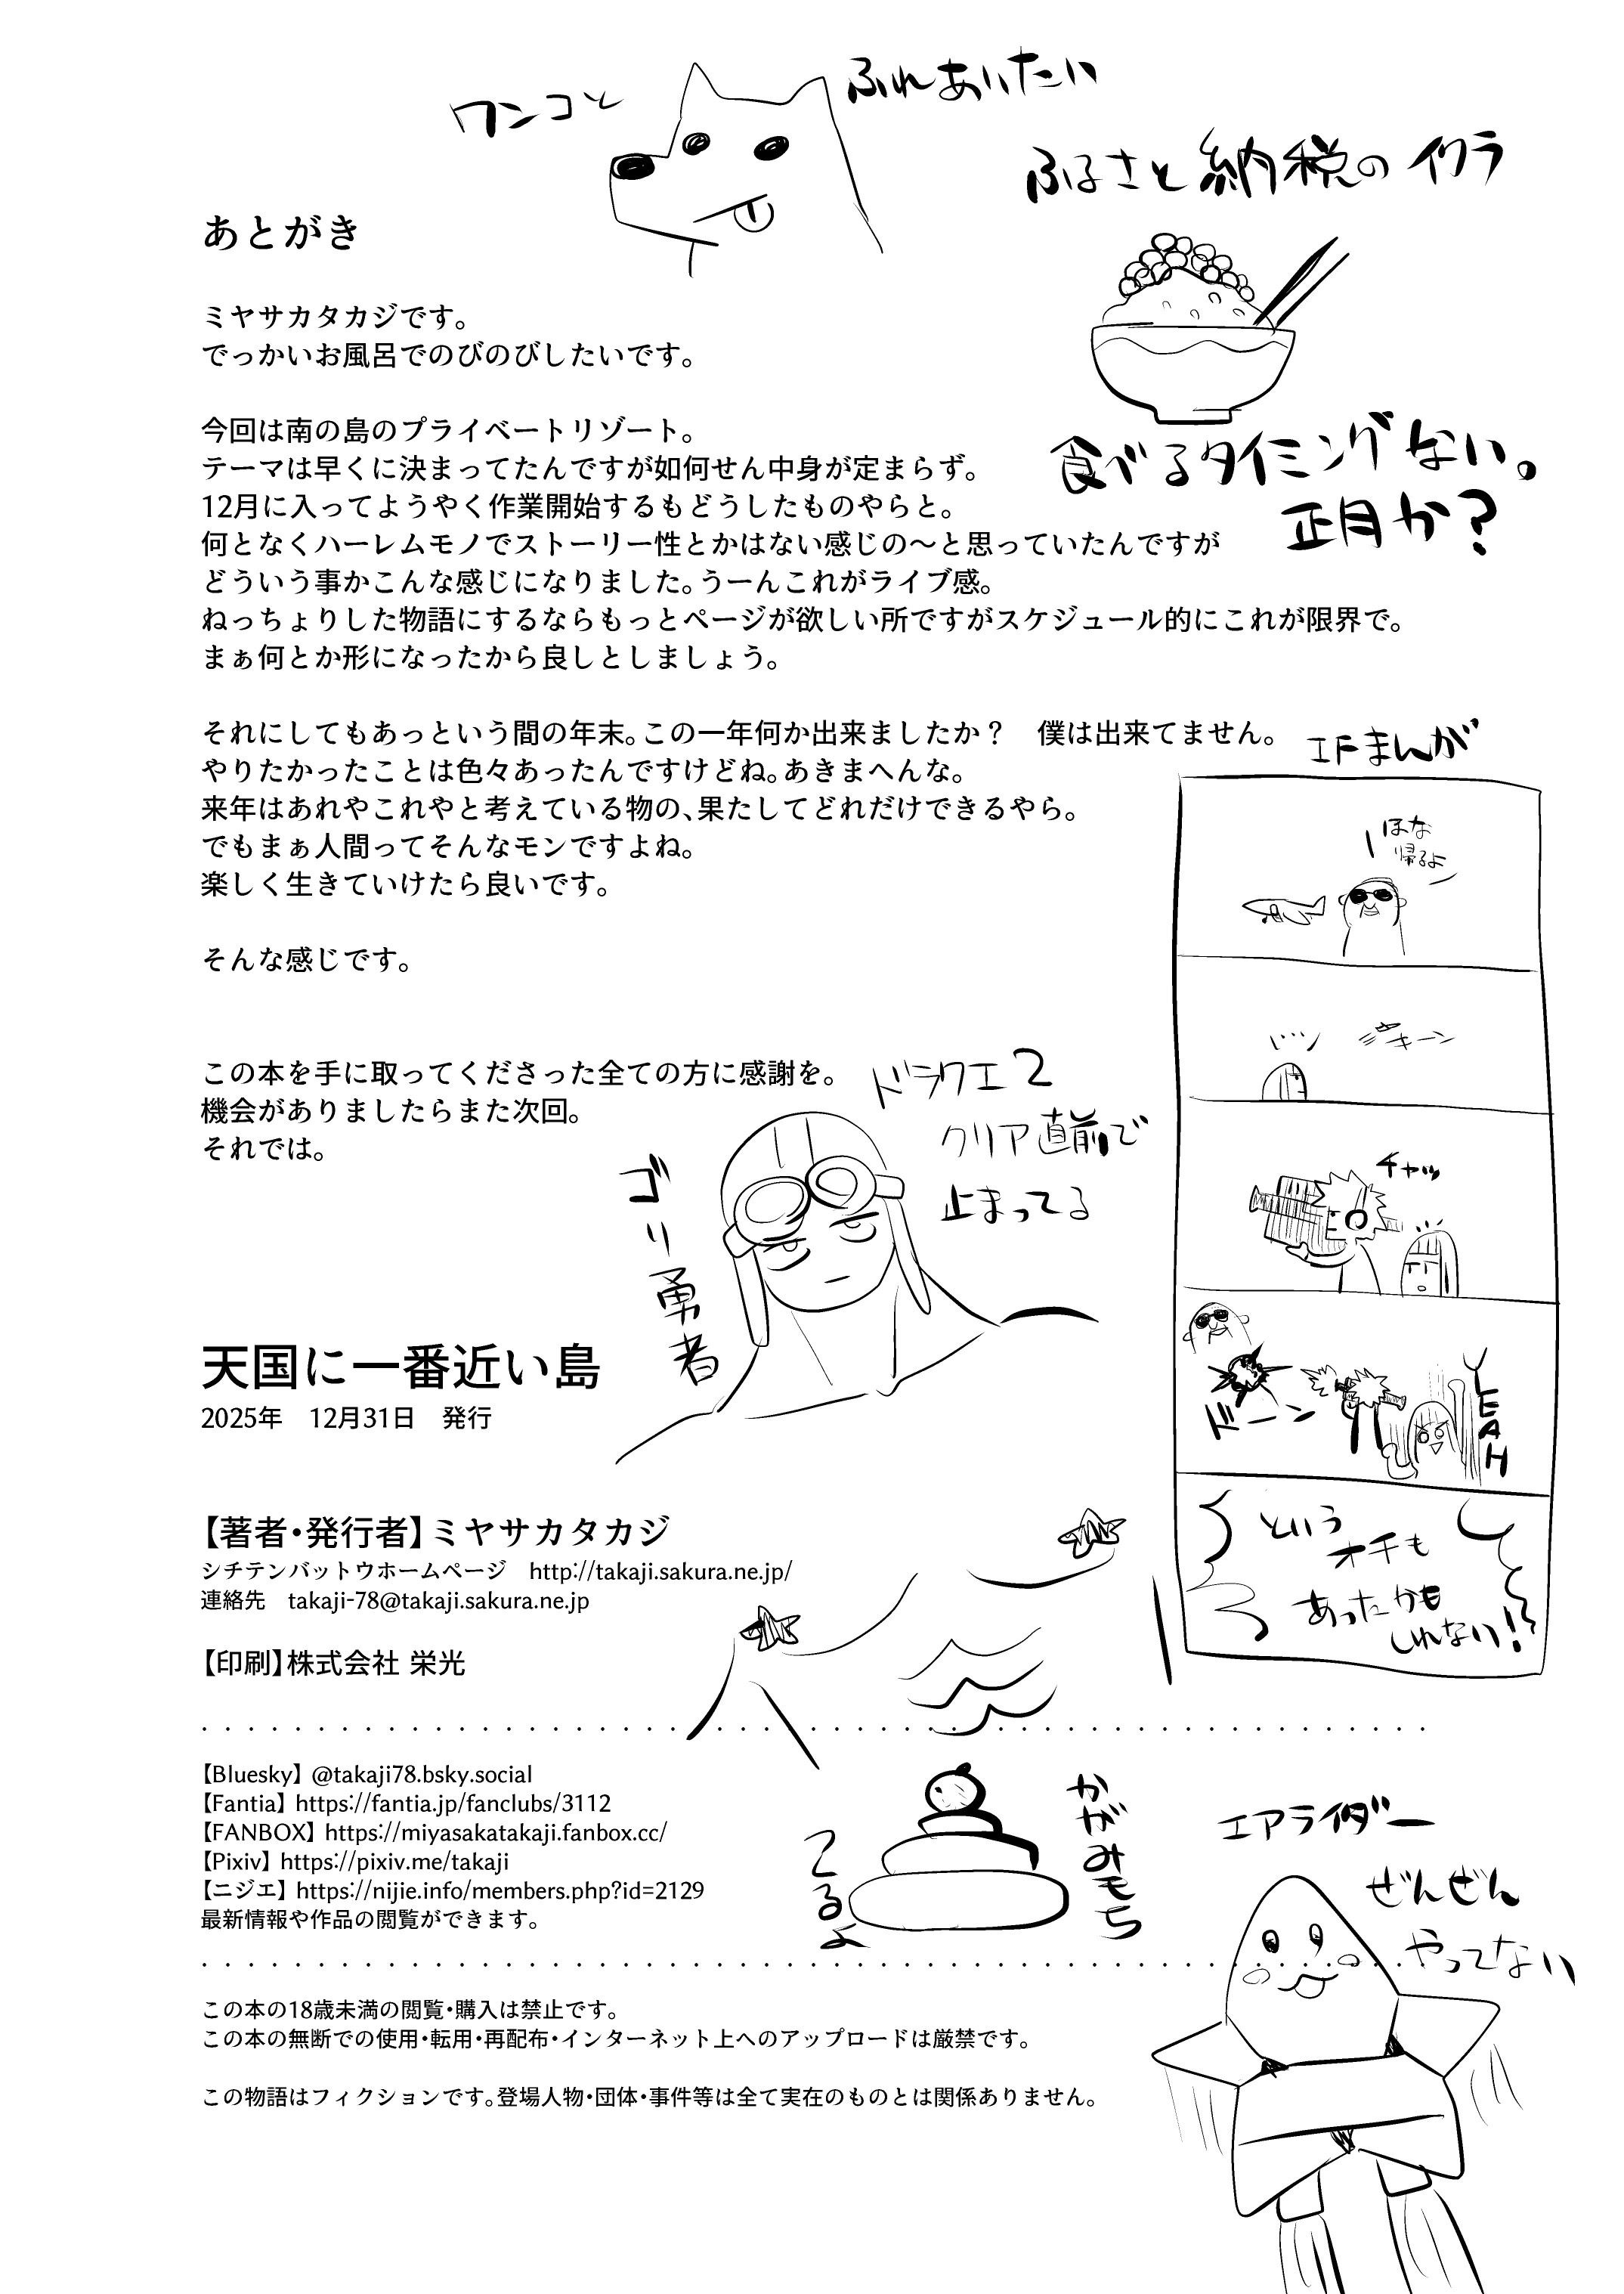 ワンコと
ふれあいたい
ふるさと納税のイクラ
食べるタイミングない。
正月か?
あとがき
ミヤサカタカジです。
でっかいお風呂でのびのびしたいです。
今回は南の島のプライベートリゾート。
テーマは早くに決まってたんですが如何せん中身が定まらず。
12月に入ってようやく作業開始するもどうしたものやらと。
何となくハーレムモノでストーリー性とかはない感じの〜と思っていたんですが
どういう事かこんな感じになりました。うーんこれがライブ感。
ねっちょりした物語にするならもっとページが欲しい所ですがスケジュール的にこれが限界で。
まぁ何とか形になったから良しとしましょう。
それにしてもあっという間の年末。この一年何か出来ましたか？　僕は出来てません。
やりたかったことは色々あったんですけどね。あきまへんな。
来年はあれやこれやと考えている物の、果たしてどれだけできるやら。
でもまぁ人間ってそんなモンですよね。
楽しく生きていけたら良いです。
そんな感じです。
この本を手に取ってくださった全ての方に感謝を。
機会がありましたらまた次回。
それでは。
ドラクエ2
クリア直前で
止まってる
ゴリ勇者
IFまんが
ほな
帰るよ
キーン
チャッ
ドーン
YEAH
という
オチも
あったかも
しれない!
天国に一番近い島
2025年　12月31日　発行
【著者・発行者】ミヤサカタカジ
シチテンバットウホームページ　http://takaji.sakura.ne.jp/
連絡先　takaji-78@takaji.sakura.ne.jp
【印刷】株式会社 栄光
【Bluesky】@takaji78.bsky.social
【Fantia】https://fantia.jp/fanclubs/3112
【FANBOX】https://miyasakatakaji.fanbox.cc/
【Pixiv】https://pixiv.me/takaji
【ニジエ】https://nijie.info/members.php?id=2129
最新情報や作品の閲覧ができます。
かがみモち
てるよ
エアライダー
ぜんぜん
やってない
この本の18歳未満の閲覧・購入は禁止です。
この本の無断での使用・転用・再配布・インターネット上へのアップロードは厳禁です。
この物語はフィクションです。登場人物・団体・事件等は全て実在のものとは関係ありません。